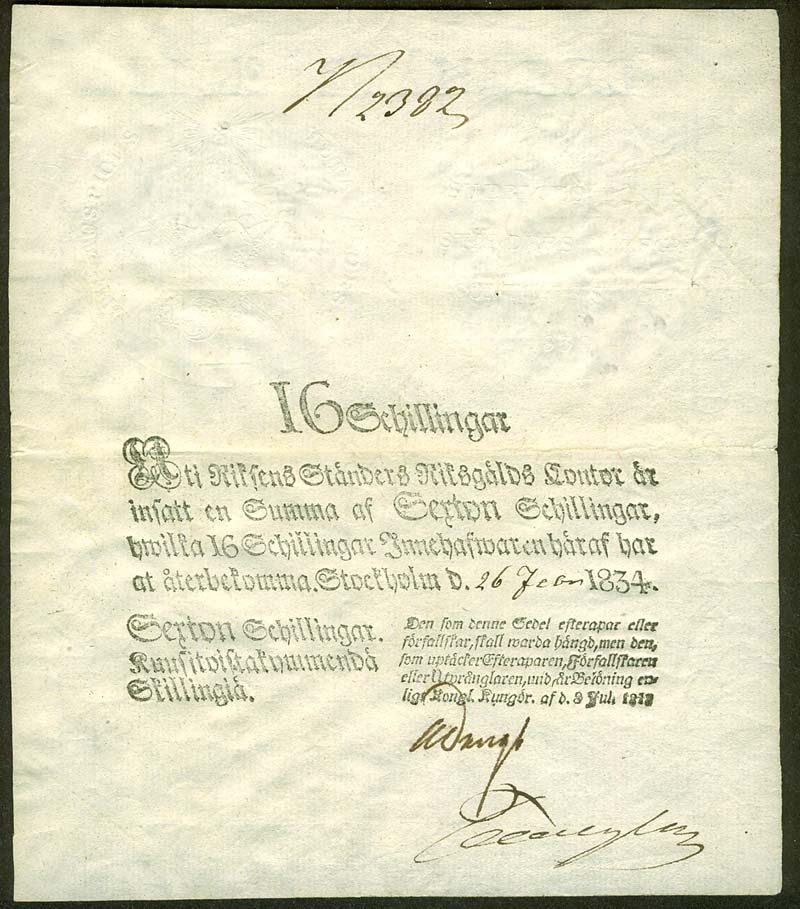 N 2382
16 Schillingar
Uti Riksens Ständers Riksgälds Contor är
insatt en Summa af Sexton Schillingar,
hwilka 16 Schillingar Innehafwaren häraf har
at återbekomma. Stockholm d. 26 Jan 1834.
Sexton Schillingar.
Kuusitoistakymmendä
Skillingiä.
Den som denne Sedel efterapar eller
förfalskar, skall warda hängd, men den,
som uptäcker Efteraparen, Förfalskaren
eller Utprånglaren, und, år Belöning en-
ligt Kongl. Kungör. af d. 8 Jul.